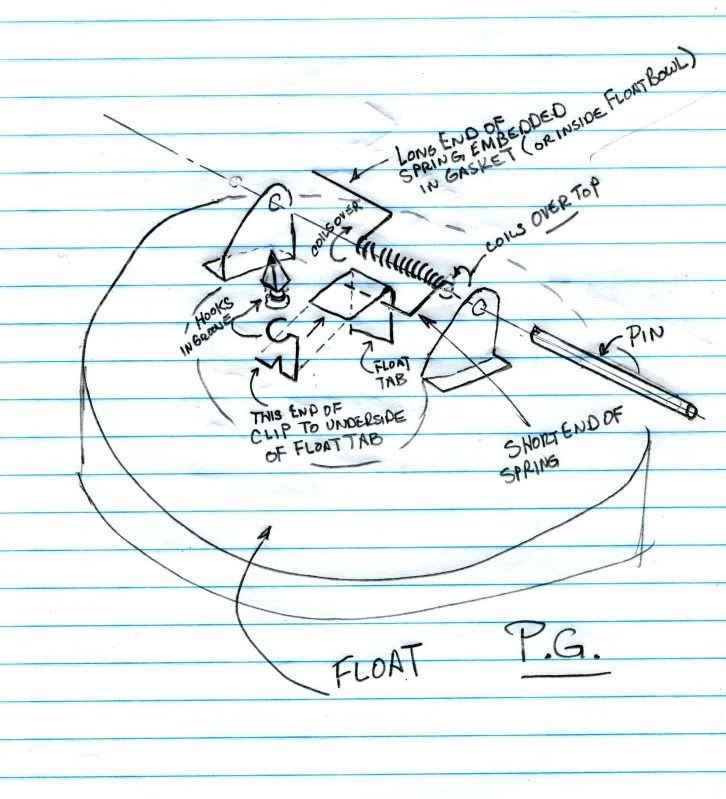 LONG END OF
SPRING EMBEDDED
IN GASKET (OR INSIDE FLOAT BOWL)
COILS OVER TOP
COILS OVER
HOOKS
IN GROOVE
PIN
FLOAT
TAB
THIS END OF
CLIP TO UNDERSIDE
OF FLOAT TAB
SHORT END OF
SPRING
FLOAT
P.G.